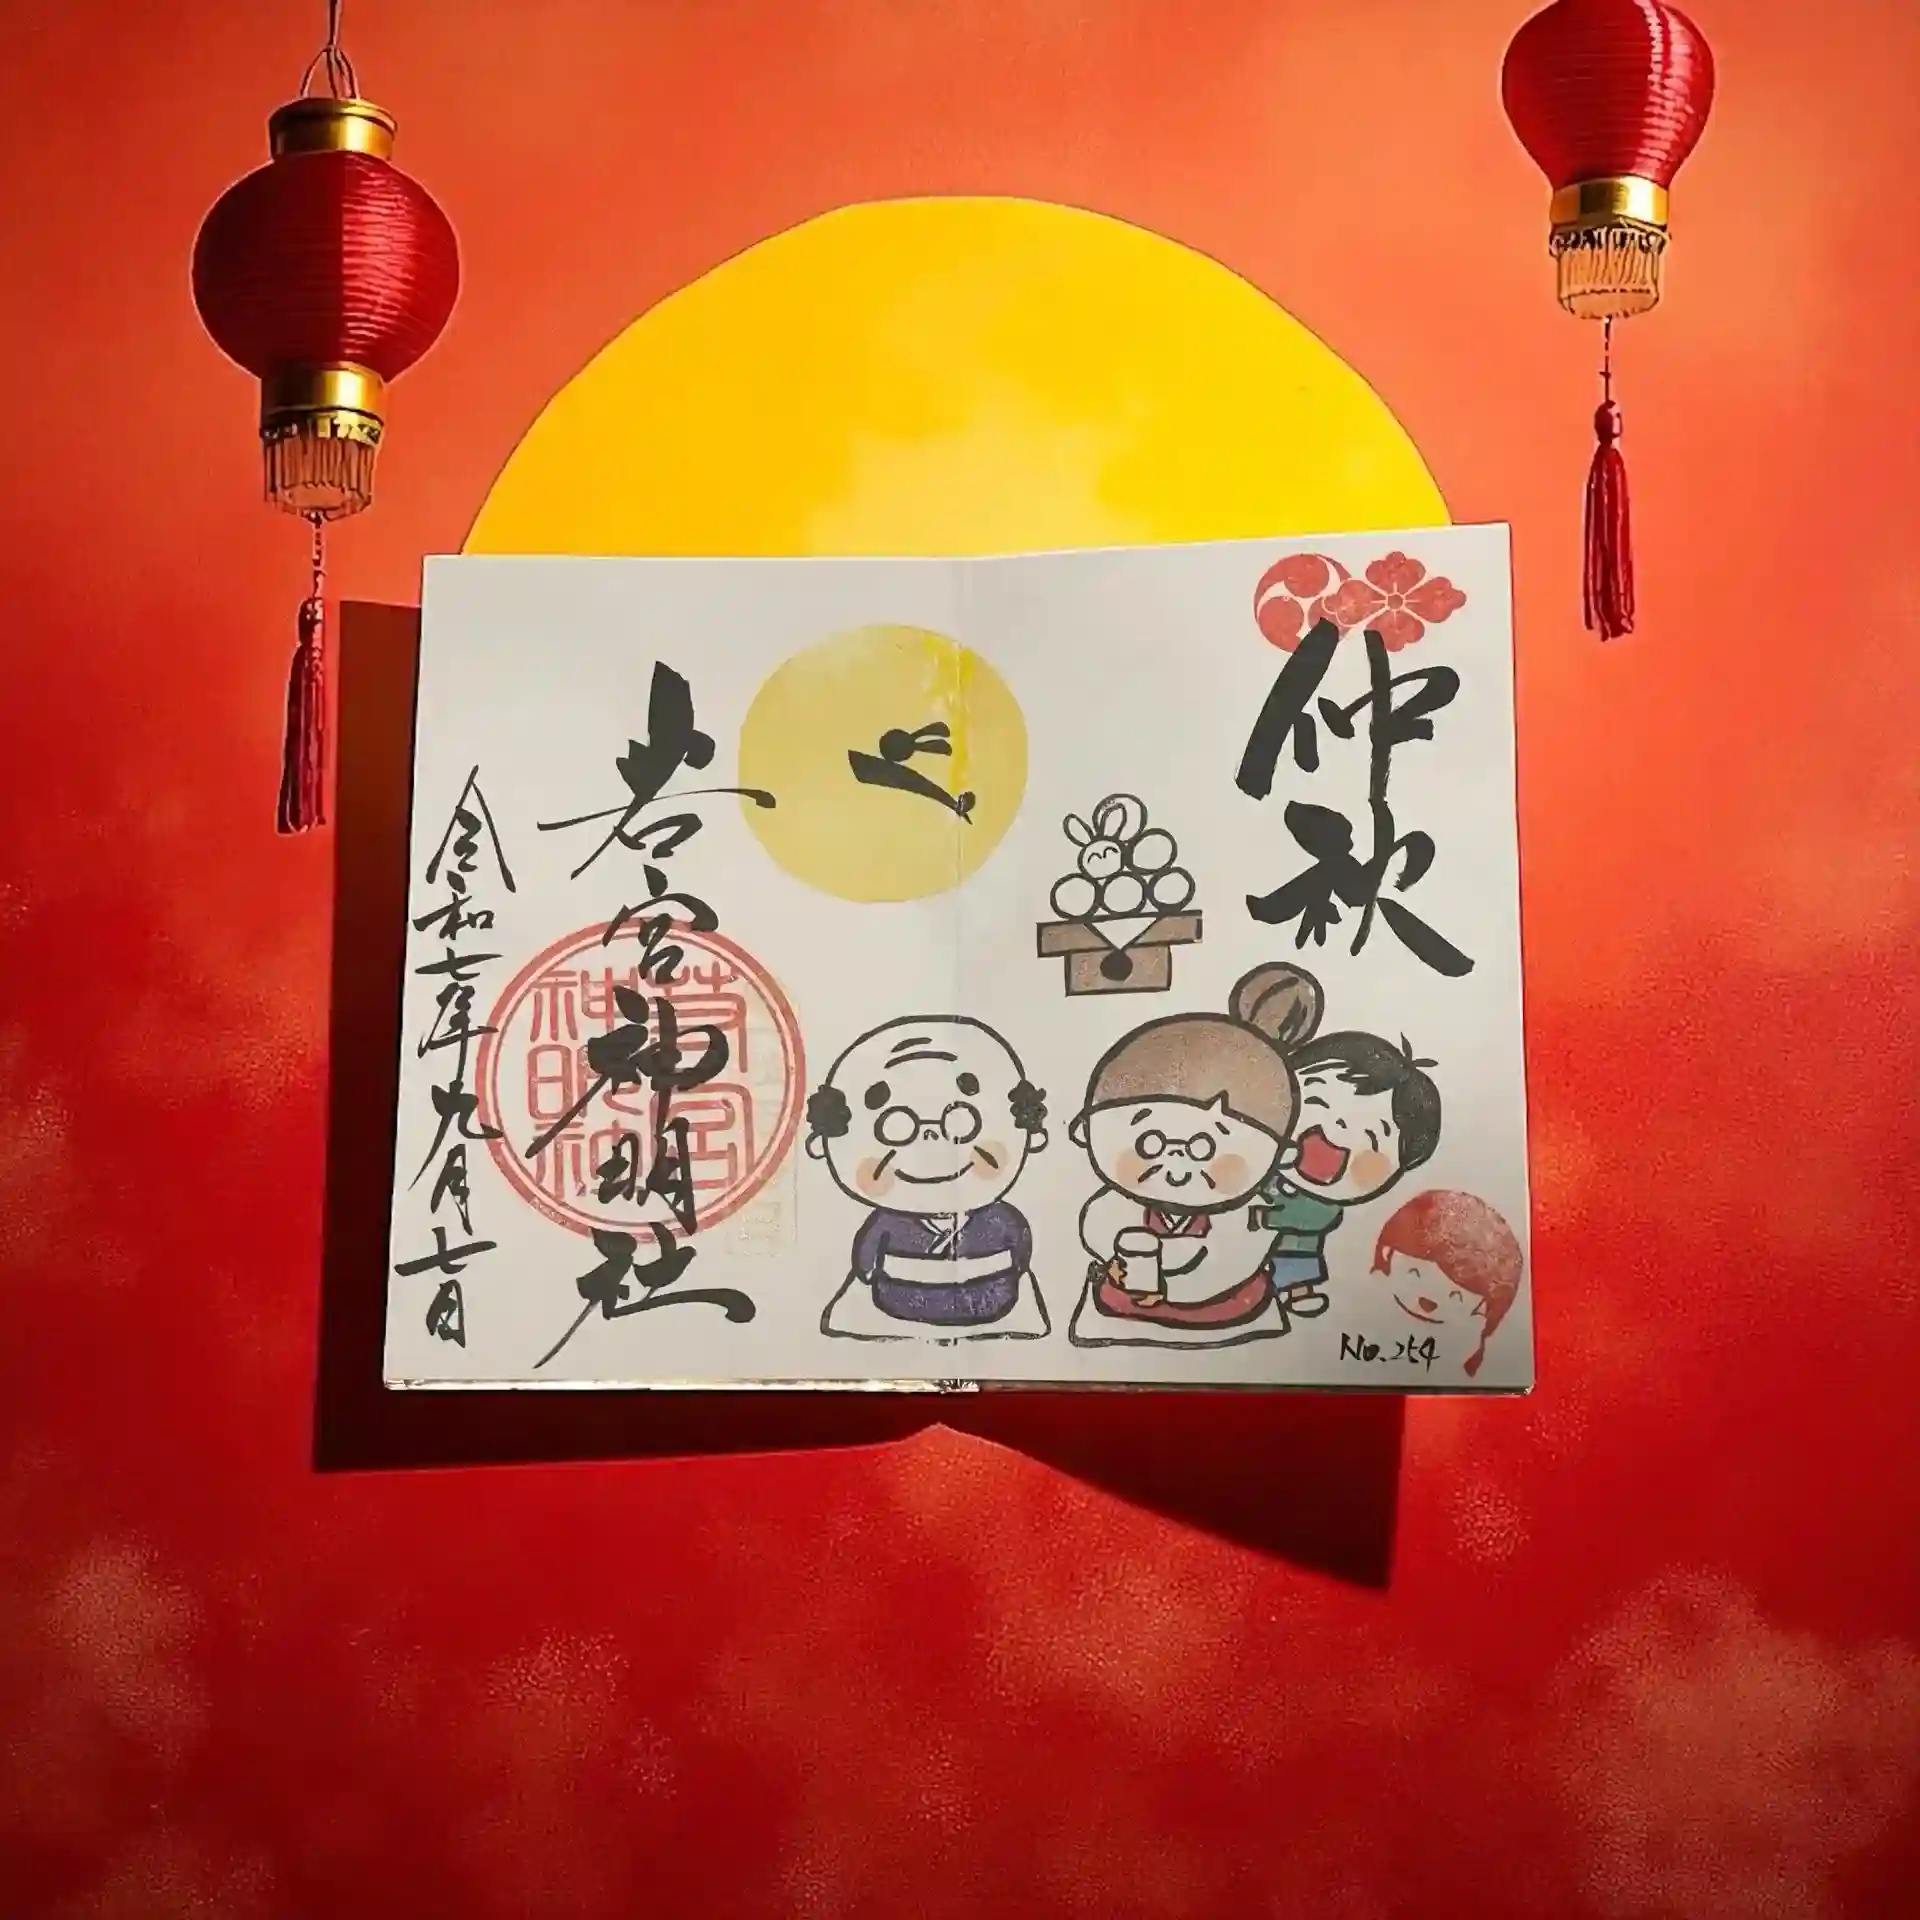 仲秋
若宮神明社
令和七年九月七日
若宮
神明社
No.254